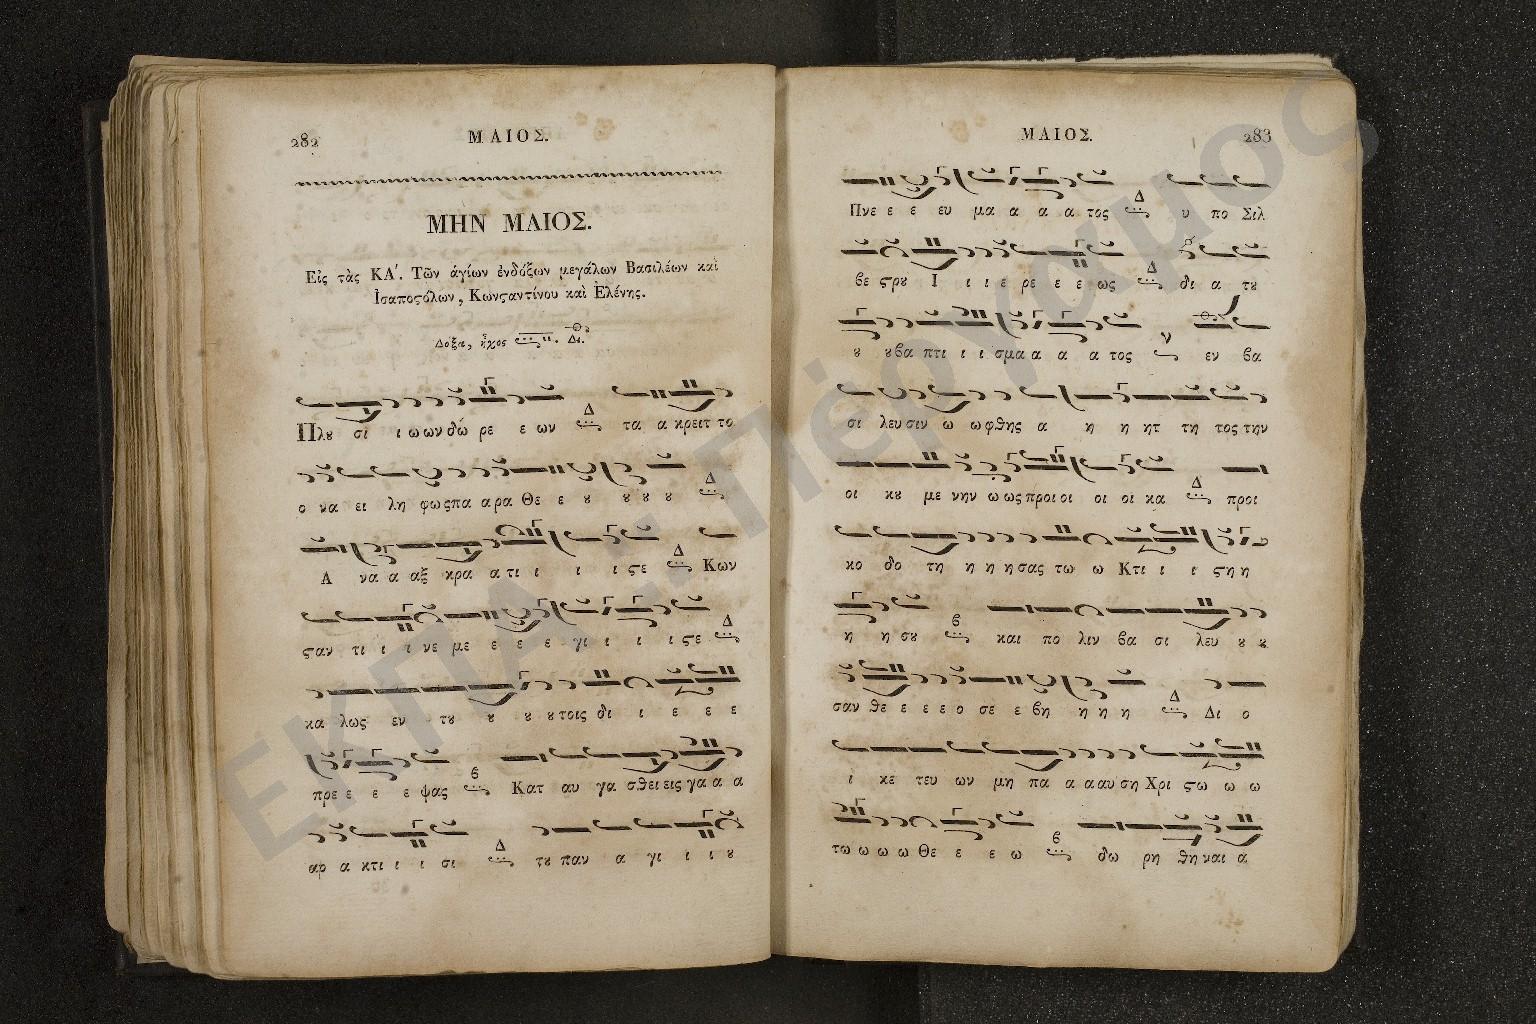 282
ΜΑΙΟΣ.
ΜΗΝ ΜΑΙΟΣ.
Εἰς τὰς ΚΑ΄. Τῶν ἁγίων ἐνδόξων μεγάλων Βασιλέων καὶ
Ἰσαποϛόλων, Κωνϛαντίνου καὶ Ἑλένης.
Δόξα, ἦχος Δι.
Πλȣ σι ι ω ων δώ ρε ε ων Δ τα α κρειτ το
ο να ει λη φως πα α ρα Θε ε ȣ ȣ ȣ ȣ Δ
Α να α αξ κρα α τι ι ι ι ϛε Δ Κων
ϛαν τι ι ι νε με ε ε ε γι ι ι ι ϛε Δ
κα λως εν τȣ ȣ ȣ ȣ τοις δι ι ε ε ε
πρε ε ε ε ψας β Κατ αυ γα σθει εις γα α α
αρ α κτι ι ι σι Δ τȣ παν α γι ι ι ȣ
ΜΑΙΟΣ.
283
Πνε ε ε ευ μα α α α τος Δ υ πο Σιλ
βε ϛρȣ Ι ι ι ε ρε ε ε ως Δ δι α τȣ
ȣ ȣ βα πτι ι ι σμα α α α τος ν εν βα
σι λευ σιν ω ω φθης α η η ητ τη τος την
οι κȣ με νην ω ως προι οι οι οι κα Δ προι
κο δο τη η η η σας τω ω Κτι ι ι ϛη η
η η σȣ β και πο λιν βα σι λευ ȣ ȣ
σαν θε ε ε ε ο σε ε βη η η η Δ Δι ο
ι κε τευ ων μη πα α α αυ ση Χρι ϛω ω ω
τω ω ω ω Θε ε ε ω β δω ρη θη ναι α
ΕΚΠΑ:: Πέργαμος